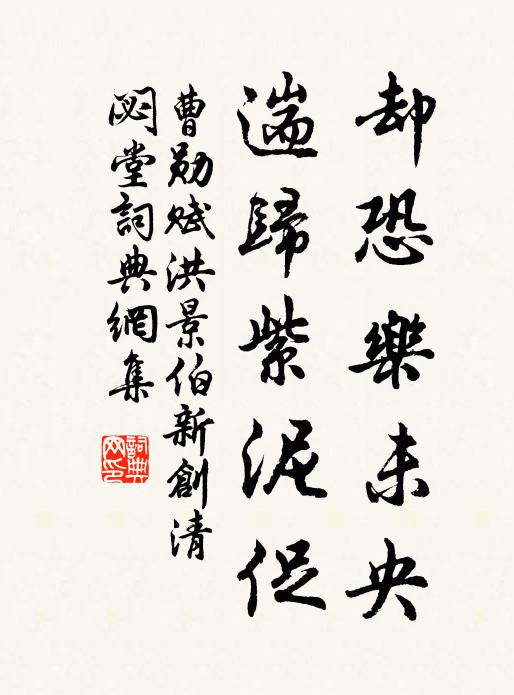 却恐樂未央
遄歸紫泥促
曹勛賦洪景伯新創清
閟堂詞典網集
詞典網印